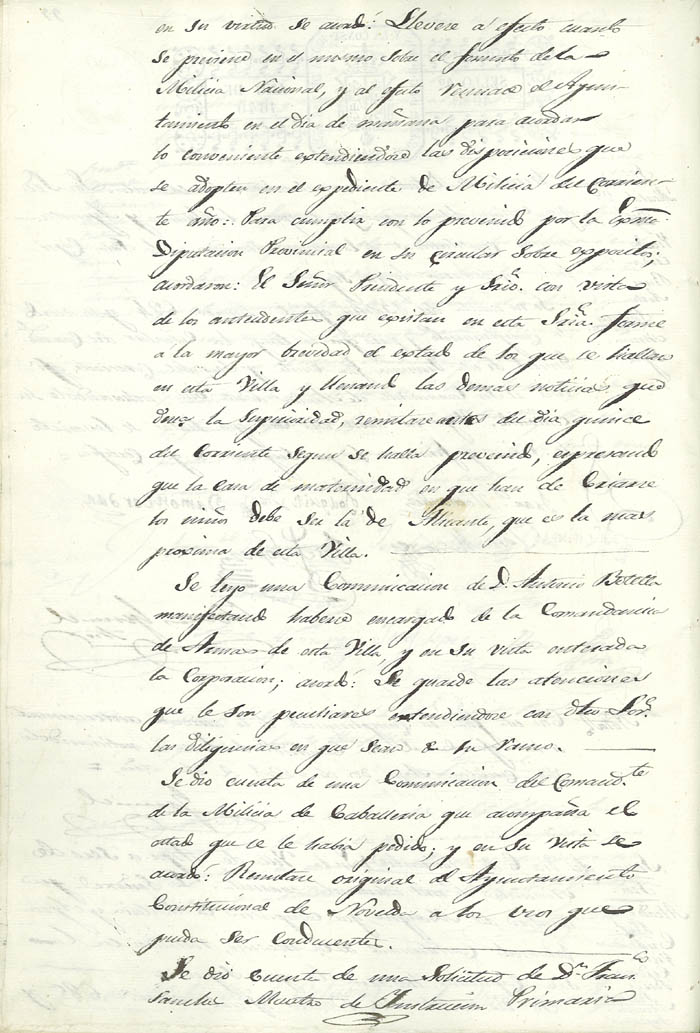 en su virtud se acordó: Llevese á efecto cuanto
se previene en el mismo sobre el fomento de la
Milicia Nacional, y al efecto reunase el Ayun-
tamiento en el dia de mañana para acordar
lo conveniente extendiendose las disposiciones que
se adopten en el expediente de Milicia del Corrien-
te año: Para cumplir con lo prevenido por la Exmã.
Diputacion Provincial en su circular sobre expositos;
acordaron: El Señor Presidente y Srio. con vista
de los antecedentes que existan en esta Sriã. forme
a la mayor brevedad el estado de los que se hallan
en esta Villa y llenando las demas noticias que
la Superioridad, remitase antes del dia quince
del Corriente segun se halla prevenido, expresando
que la Casa de maternidad en que han de Criarse
los niños debe ser la de Alicante, que es la mas
proxima de esta Villa.
Se leyo una Comunicacion de D. Antonio Botella
manifestando haberse encargado de la Comandancia
de Armas de esta Villa, y en su vista enterada
la Corporacion; acordó: Se guarde las atenciones
que le son peculiares entendiendose con dho Sor.
las diligencias en que sean de su ramo.
Se dio cuenta de una Comunicacion del Comandte
de la Milicia de Caballeria que acompaña el
estado que se le habia pedido; y en su vista se
acordó: Remitase original al Ayuntamiento
Constitucional de Novelda a los usos que
pueda ser conducente.
Se dio cuenta de una Solicitud de Dn. Franco
Sanchez Maestro de Instruccion Primaria